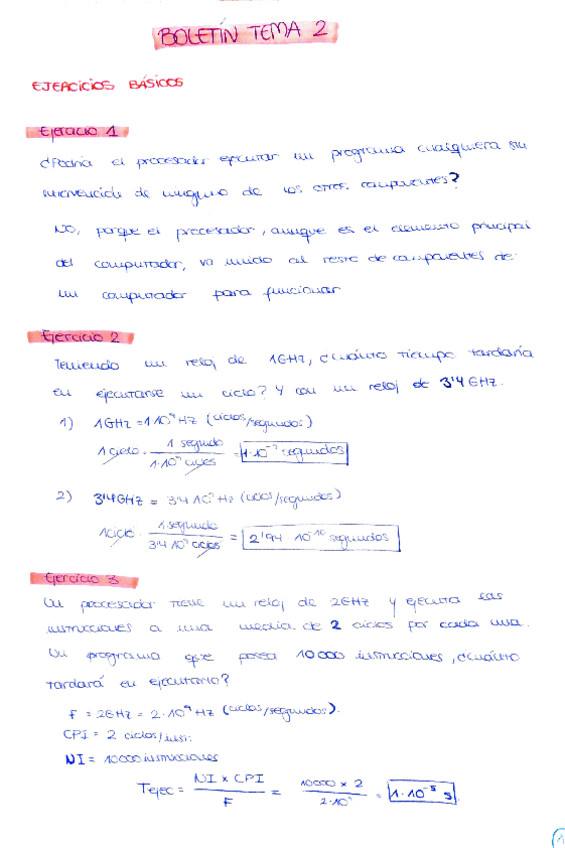 BOLETÍN TEMA 2
EJERCICIOS BÁSICOS
Ejercicio 1
¿Podría el procesador ejecutar un programa cualquiera sin
intervención de ninguno de los otros componentes?
NO, porque el procesador, aunque es el elemento principal
del computador, va unido al resto de componentes de
un computador para funcionar
Ejercicio 2
Teniendo un reloj de 1GHz, ¿cuánto tiempo tardaría
en ejecutarse un ciclo? Y con un reloj de 3'4 GHz.
1) 1GHz = 1·10⁹ Hz (ciclos/segundos)
1 ciclo · 1 segundo / 1·10⁹ ciclos = 1·10⁻⁹ segundos
2) 3'4GHz = 3'4·10⁹ Hz (ciclos/segundos)
1 ciclo · 1 segundo / 3'4·10⁹ ciclos = 2'94 · 10⁻¹⁰ segundos
Ejercicio 3
Un procesador tiene un reloj de 2GHz y ejecuta las
instrucciones a una media de 2 ciclos por cada una.
Un programa que posea 10000 instrucciones, ¿cuánto
tardará en ejecutarlo?
F = 2GHz = 2·10⁹ Hz (ciclos/segundos).
CPI = 2 ciclos/instr.
NI = 10000 instrucciones
Tejec = NI x CPI / F = 10000 x 2 / 2·10⁹ = 1·10⁻⁵ s